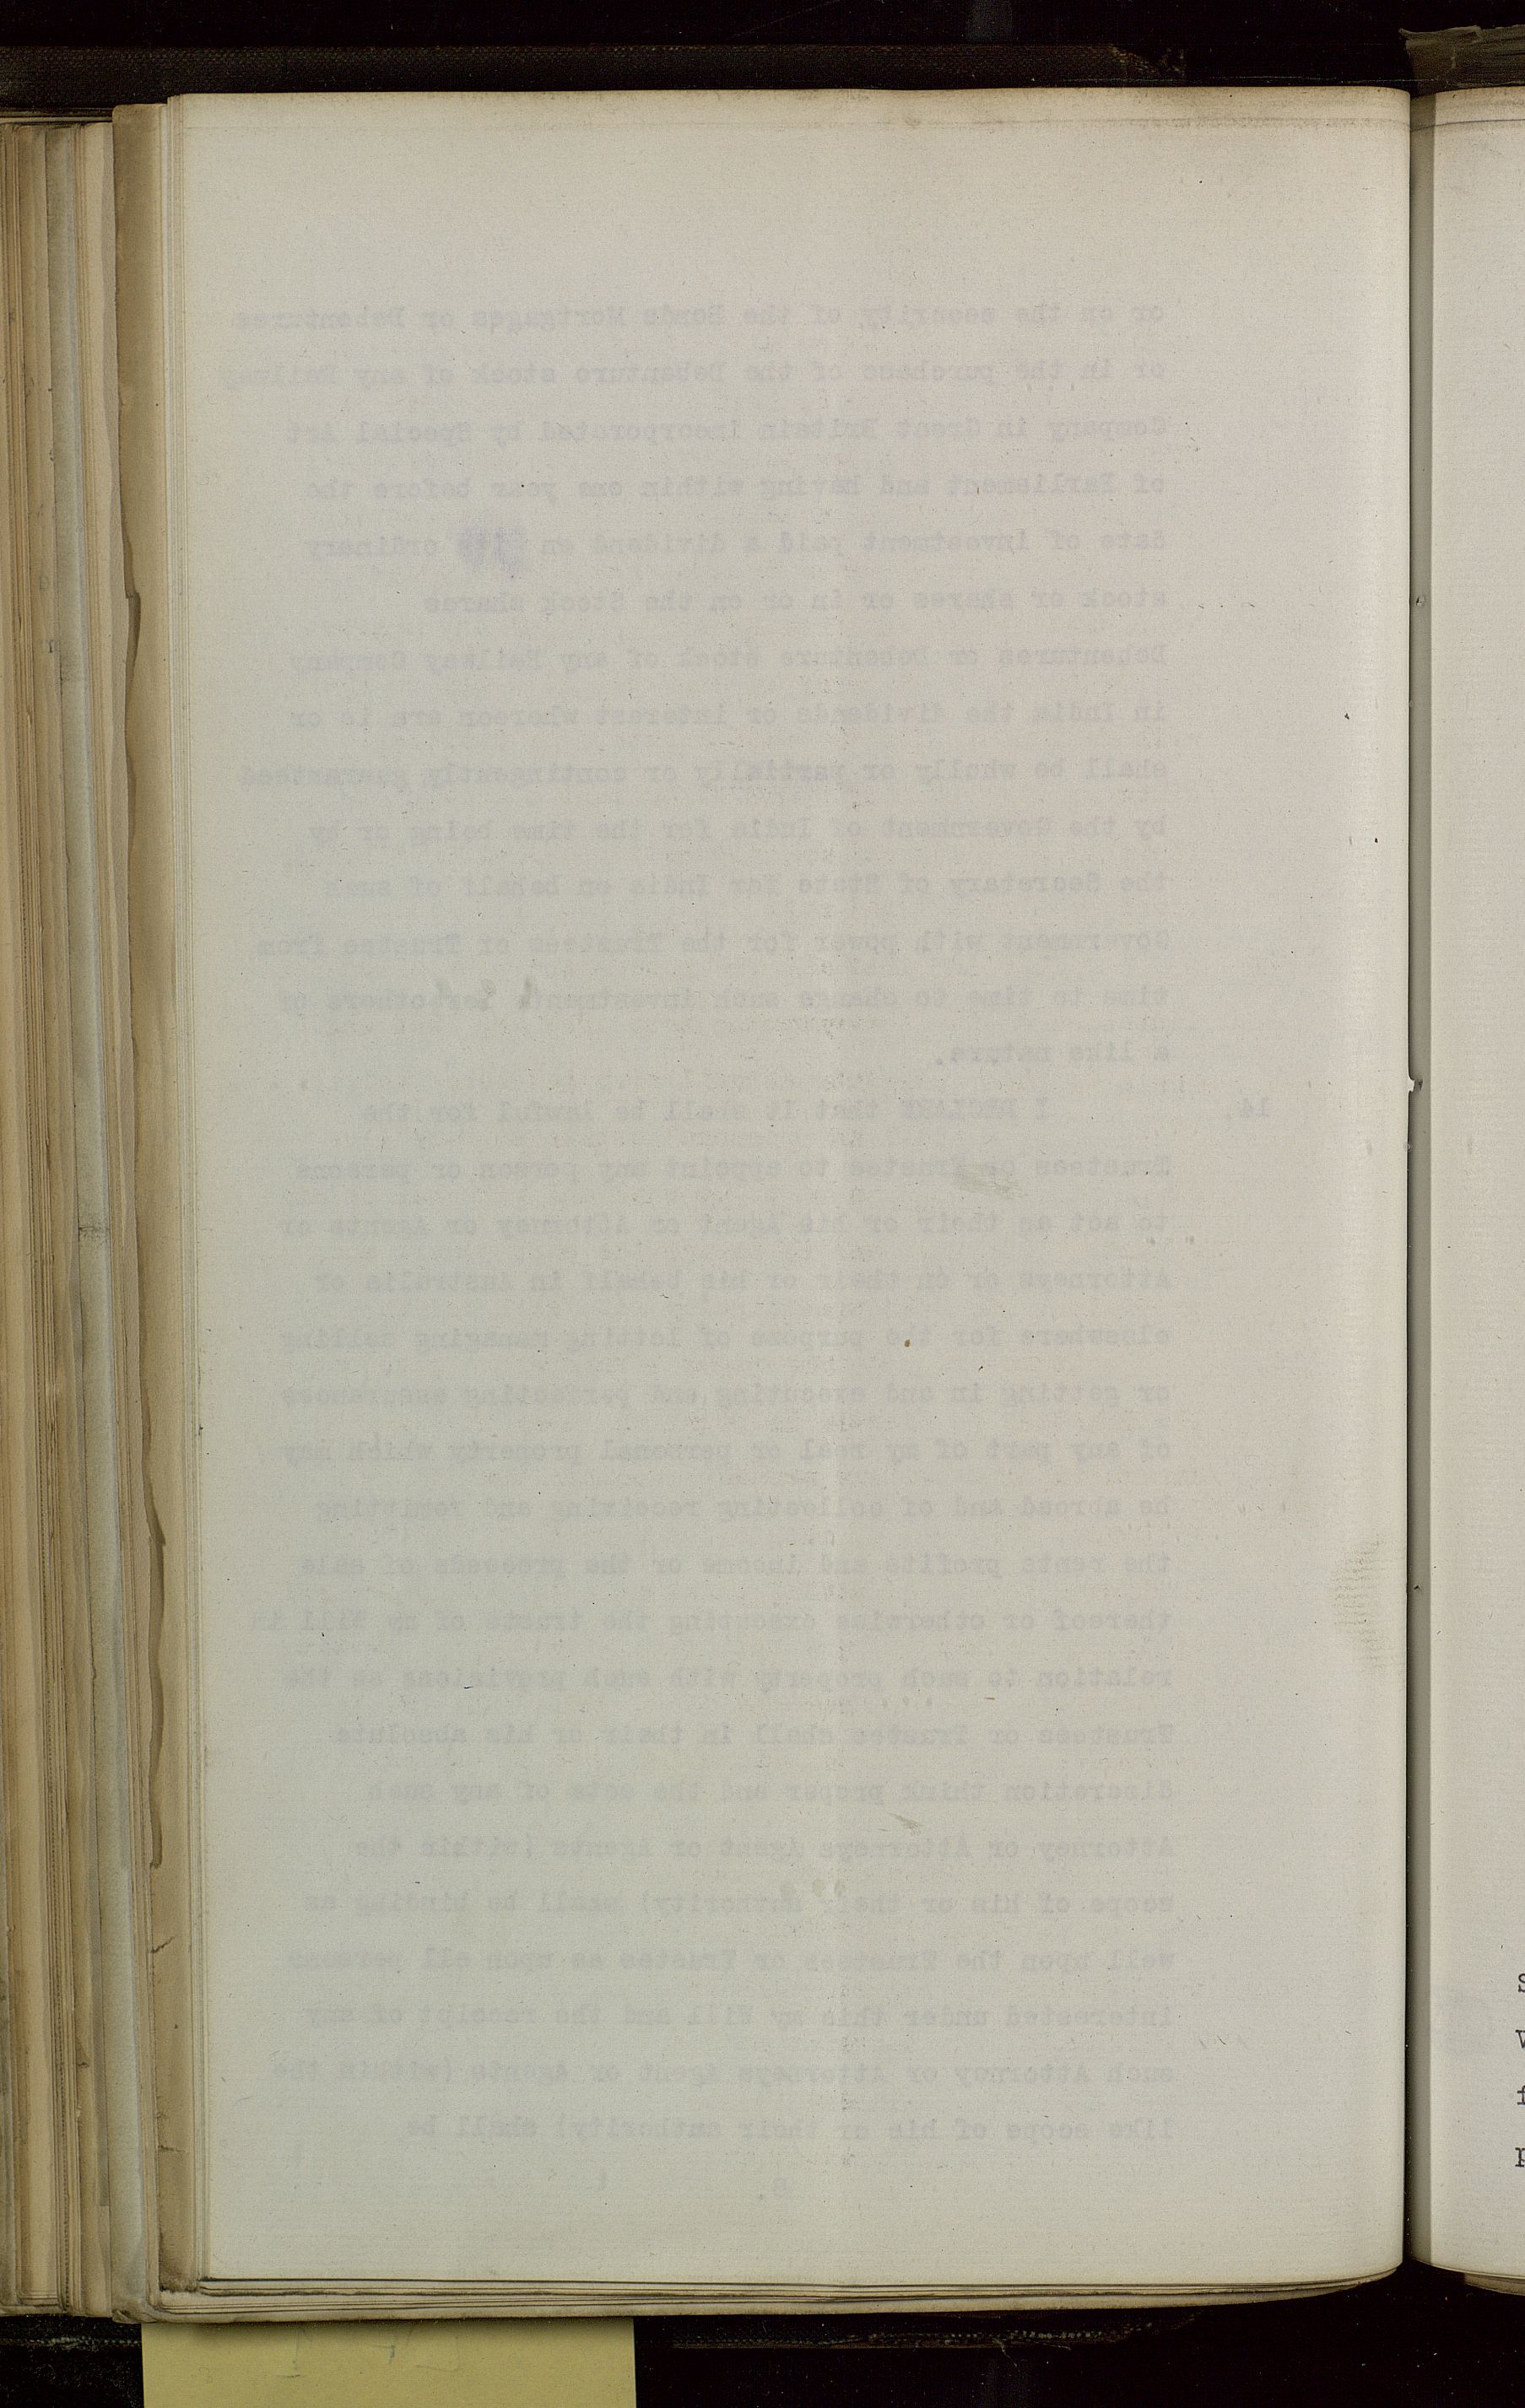 or on the security of the Bonds Mortgages or Debentures
or in the purchase of the Debenture stock of any Railway
Company in Great Britain incorporated by Special Act
of Parliament and having within one year before the
date of investment paid a dividend on its ordinary
stock or shares or in or on the Stock shares
Debentures or Debenture stock of any Railway Company
in India the dividends or interest whereon are is or
shall be wholly or partially or contingently guaranteed
by the Government of India for the time being or by
the Secretary of State for India on behalf of such
Government with power for the Trustees or Trustee from
time to time to change such investments for others of
a like nature.
14. I DECLARE that it shall be lawful for the
Trustees or Trustee to appoint any person or persons
to act as their or his Agent or Attorney or Agents or
Attorneys or on their or his behalf in Australia or
elsewhere for the purpose of letting managing selling
or getting in and executing and perfecting assurances
of any part of my real or personal property which may
be abroad and of collecting receiving and remitting
the rents profits and income or the proceeds of sale
thereof or otherwise executing the trusts of my Will in
relation to such property with such provisions as the
Trustees or Trustee shall in their or his absolute
discretion think proper and the acts of any such
Attorney or Attorneys Agent or Agents (within the
scope of his or their authority) shall be binding as
well upon the Trustees or Trustee as upon all persons
interested under this my Will and the receipt of any
such Attorney or Attorneys Agent or Agents (within the
like scope of his or their authority) shall be
8.